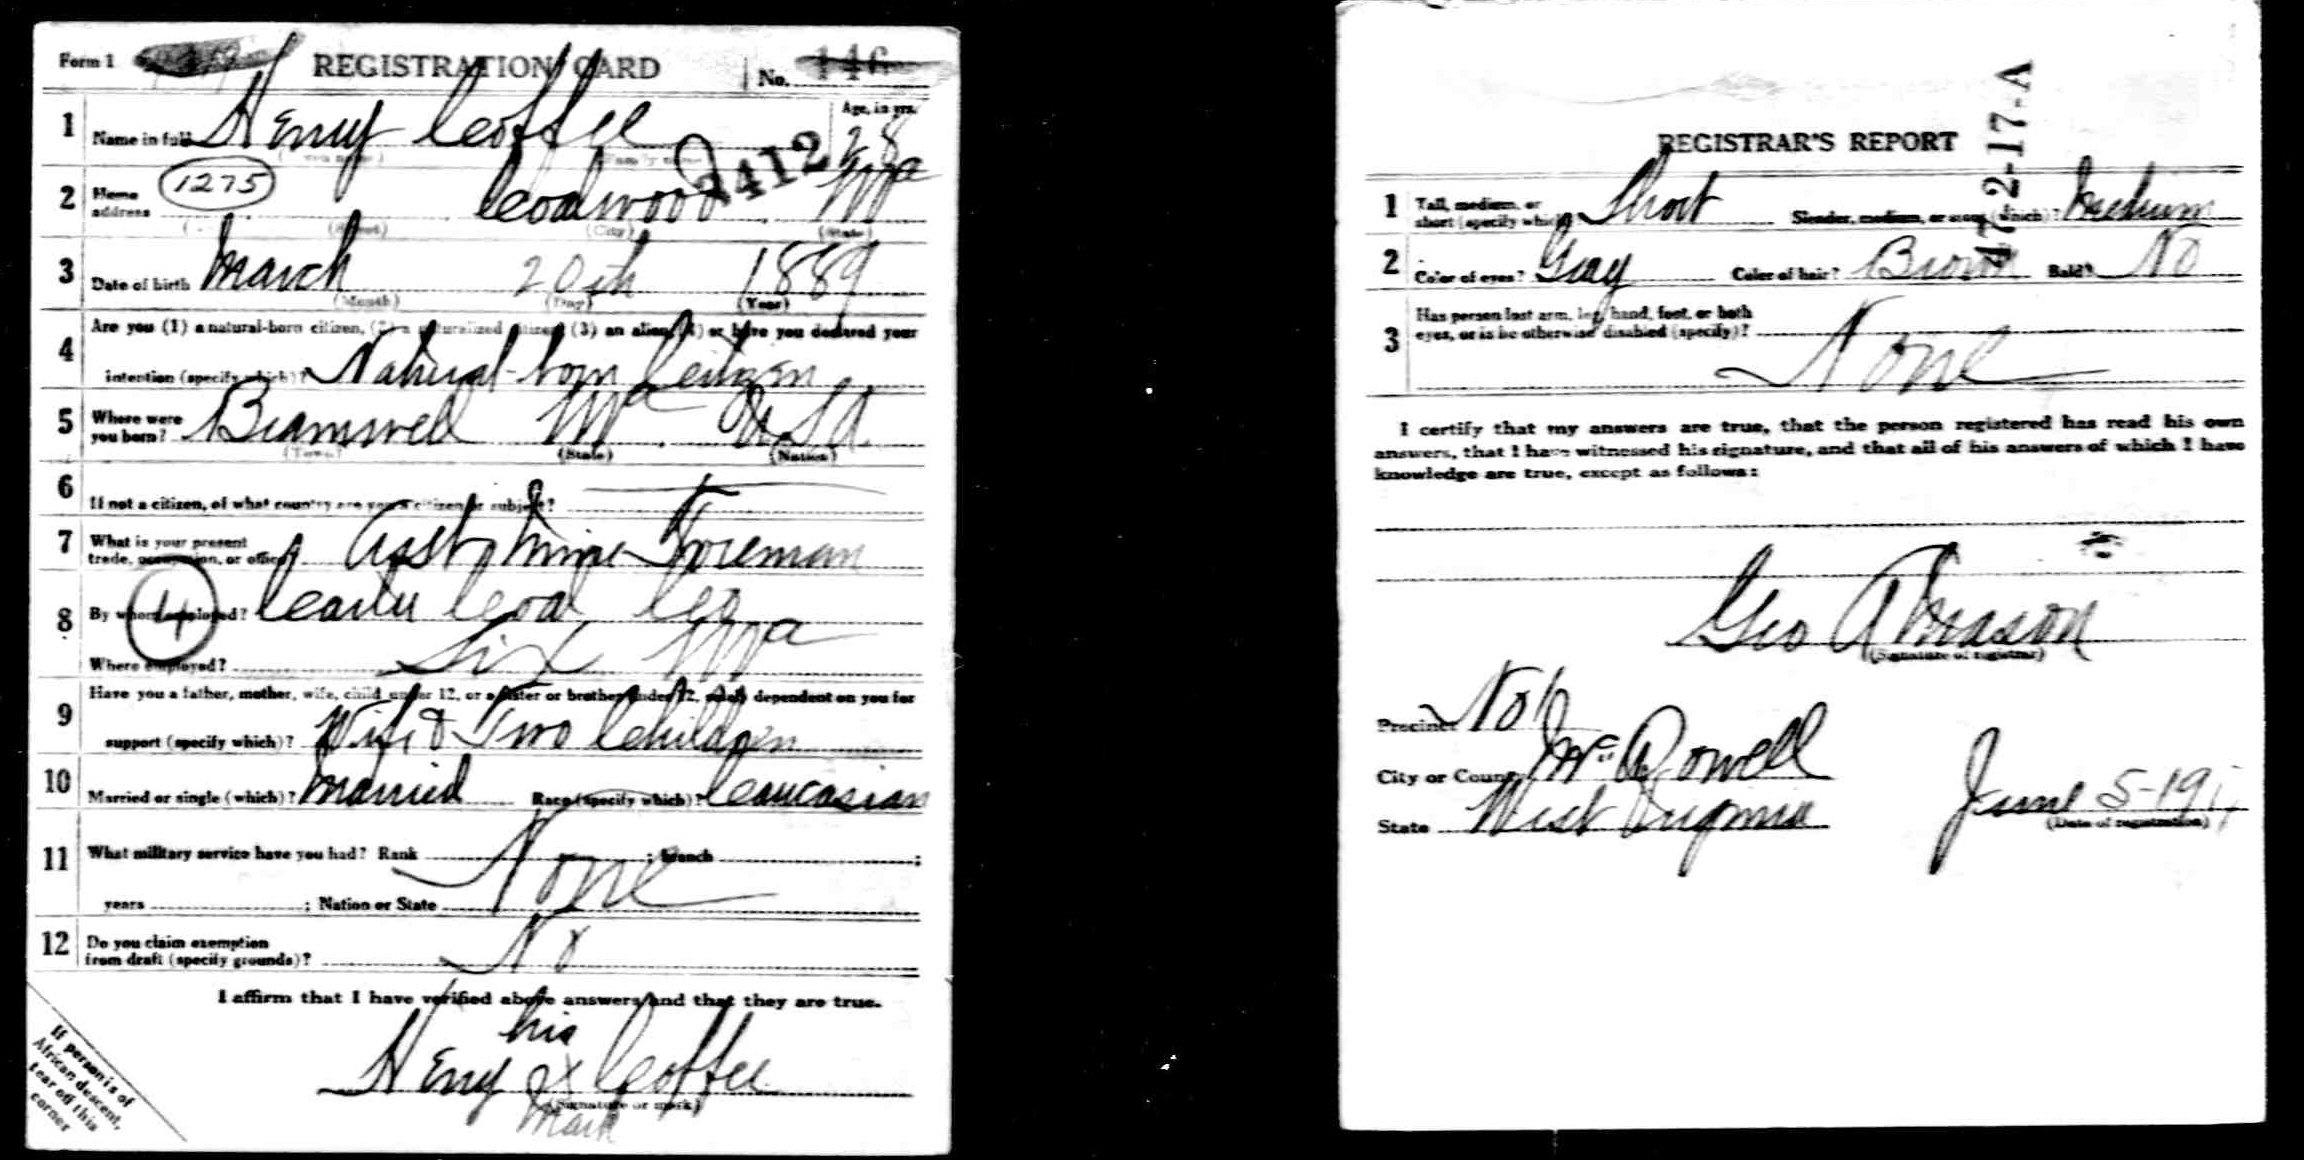 Form 1 REGISTRATION CARD No. 146
1 Name in full Henry Coffee Age, in yrs. 28
(Family name)
1275 2412
2 Home address Coalwood W Va
(Street) (City) (State)
3 Date of birth March 20th 1889
(Month) (Day) (Year)
4 Are you (1) a natural-born citizen, (2) a naturalized citizen, (3) an alien, (4) or have you declared your
intention (specify which)? Natural-born Citizen
5 Where were you born? Bramwell W Va U.S.A.
(Town) (State) (Nation)
6 If not a citizen, of what country are you a citizen or subject?
7 What is your present trade, occupation, or office? Asst Mine Foreman
8 By whom employed? Coal Co
4
Where employed? Six W Va
9 Have you a father, mother, wife, child under 12, or a sister or brother under 12, solely dependent on you for
support (specify which)? Wife & Two Children
10 Married or single (which)? Married Race (specify which)? Caucasian
11 What military service have you had? Rank None ; branch ;
years ; Nation or State
12 Do you claim exemption from draft (specify grounds)? No
I affirm that I have verified above answers and that they are true.
his
Henry X Coffee
(Signature or mark)
mark
If person is of
African descent,
tear off this
corner
47-2-17-A
REGISTRAR'S REPORT
1 Tall, medium, or short (specify which)? Short Slender, medium, or stout (which)? Medium
2 Color of eyes? Gray Color of hair? Brown Bald? No
3 Has person lost arm, leg, hand, foot, or both
eyes, or is he otherwise disabled (specify)? None
I certify that my answers are true, that the person registered has read his own
answers, that I have witnessed his signature, and that all of his answers of which I have
knowledge are true, except as follows:
Geo A Mason
(Signature of registrar)
Precinct No 1
City or County McDowell
State West Virginia June 5-1917
(Date of registration)